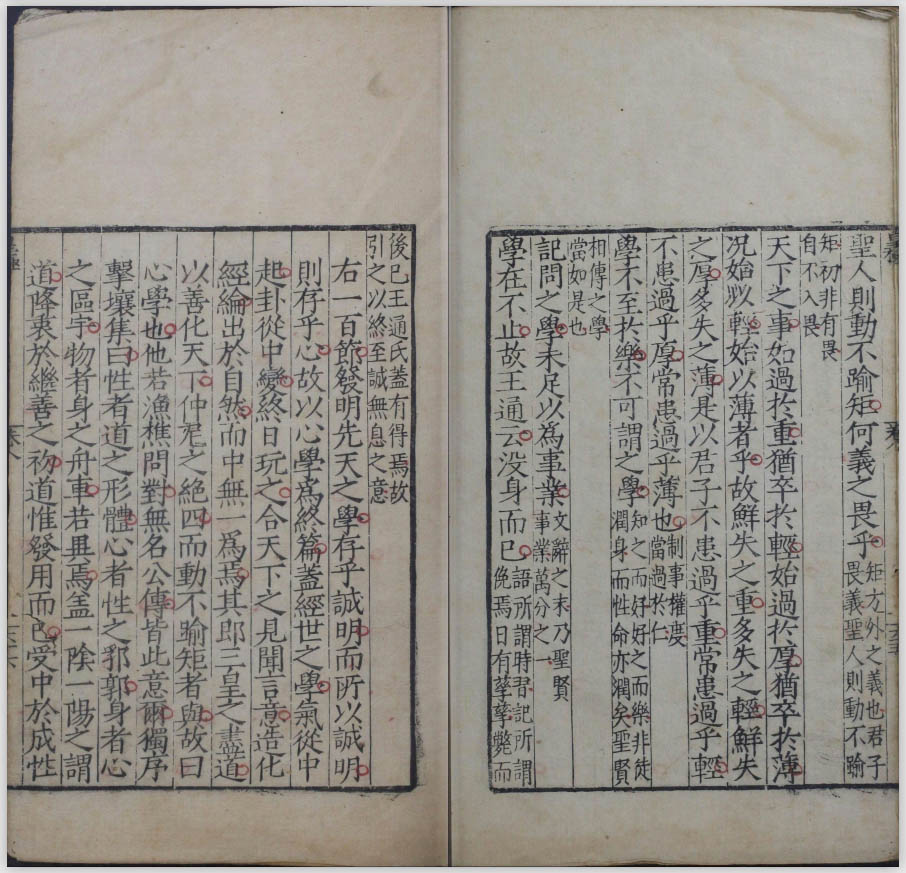 聖人則動不踰矩何義之畏乎矩方外之義也君子畏義聖人則動不踰
矩初非有畏自不入畏
天下之事始過於重猶卒於輕始過於厚猶卒於薄
況始以輕始以薄者乎故鮮失之重多失之輕鮮失
之厚多失之薄是以君子不患過乎重常患過乎輕
不患過乎厚常患過乎薄也制事權度當過於仁
學不至於樂不可謂之學知之而好好之而樂非徒潤身而性命亦潤矣聖賢
相傳之學當如是也
記問之學未足以為事業文辭之末乃聖賢事業萬分之一
學在不止故王通云没身而已語所謂時習記所謂俛焉日有孳孳斃而
後已王通氏蓋有得焉故引之以終至誠無息之意
右一百節發明先天之學存乎誠明而所以誠明
則存乎心故以心學為終篇蓋經世之學氣從中
起卦從中變終日玩之合天下之見聞言意造化
經綸出於自然而中無一為焉其即三皇之盡道
以善化天下仲尼之絶四而動不踰矩者與故曰
心學也他若漁樵問對無名公傳皆此意爾獨序
擊壤集曰性者道之形體心者性之郛郭身者心
之區宇物者身之舟車若異焉盖一陰一陽之謂
道隆衷於繼善之初道惟發用而已受中於成性